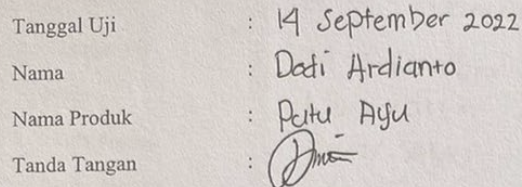 Tanggal Uji : 14 September 2022
Nama : Dafi Ardianto
Nama Produk : Putu Ayu
Tanda Tangan :